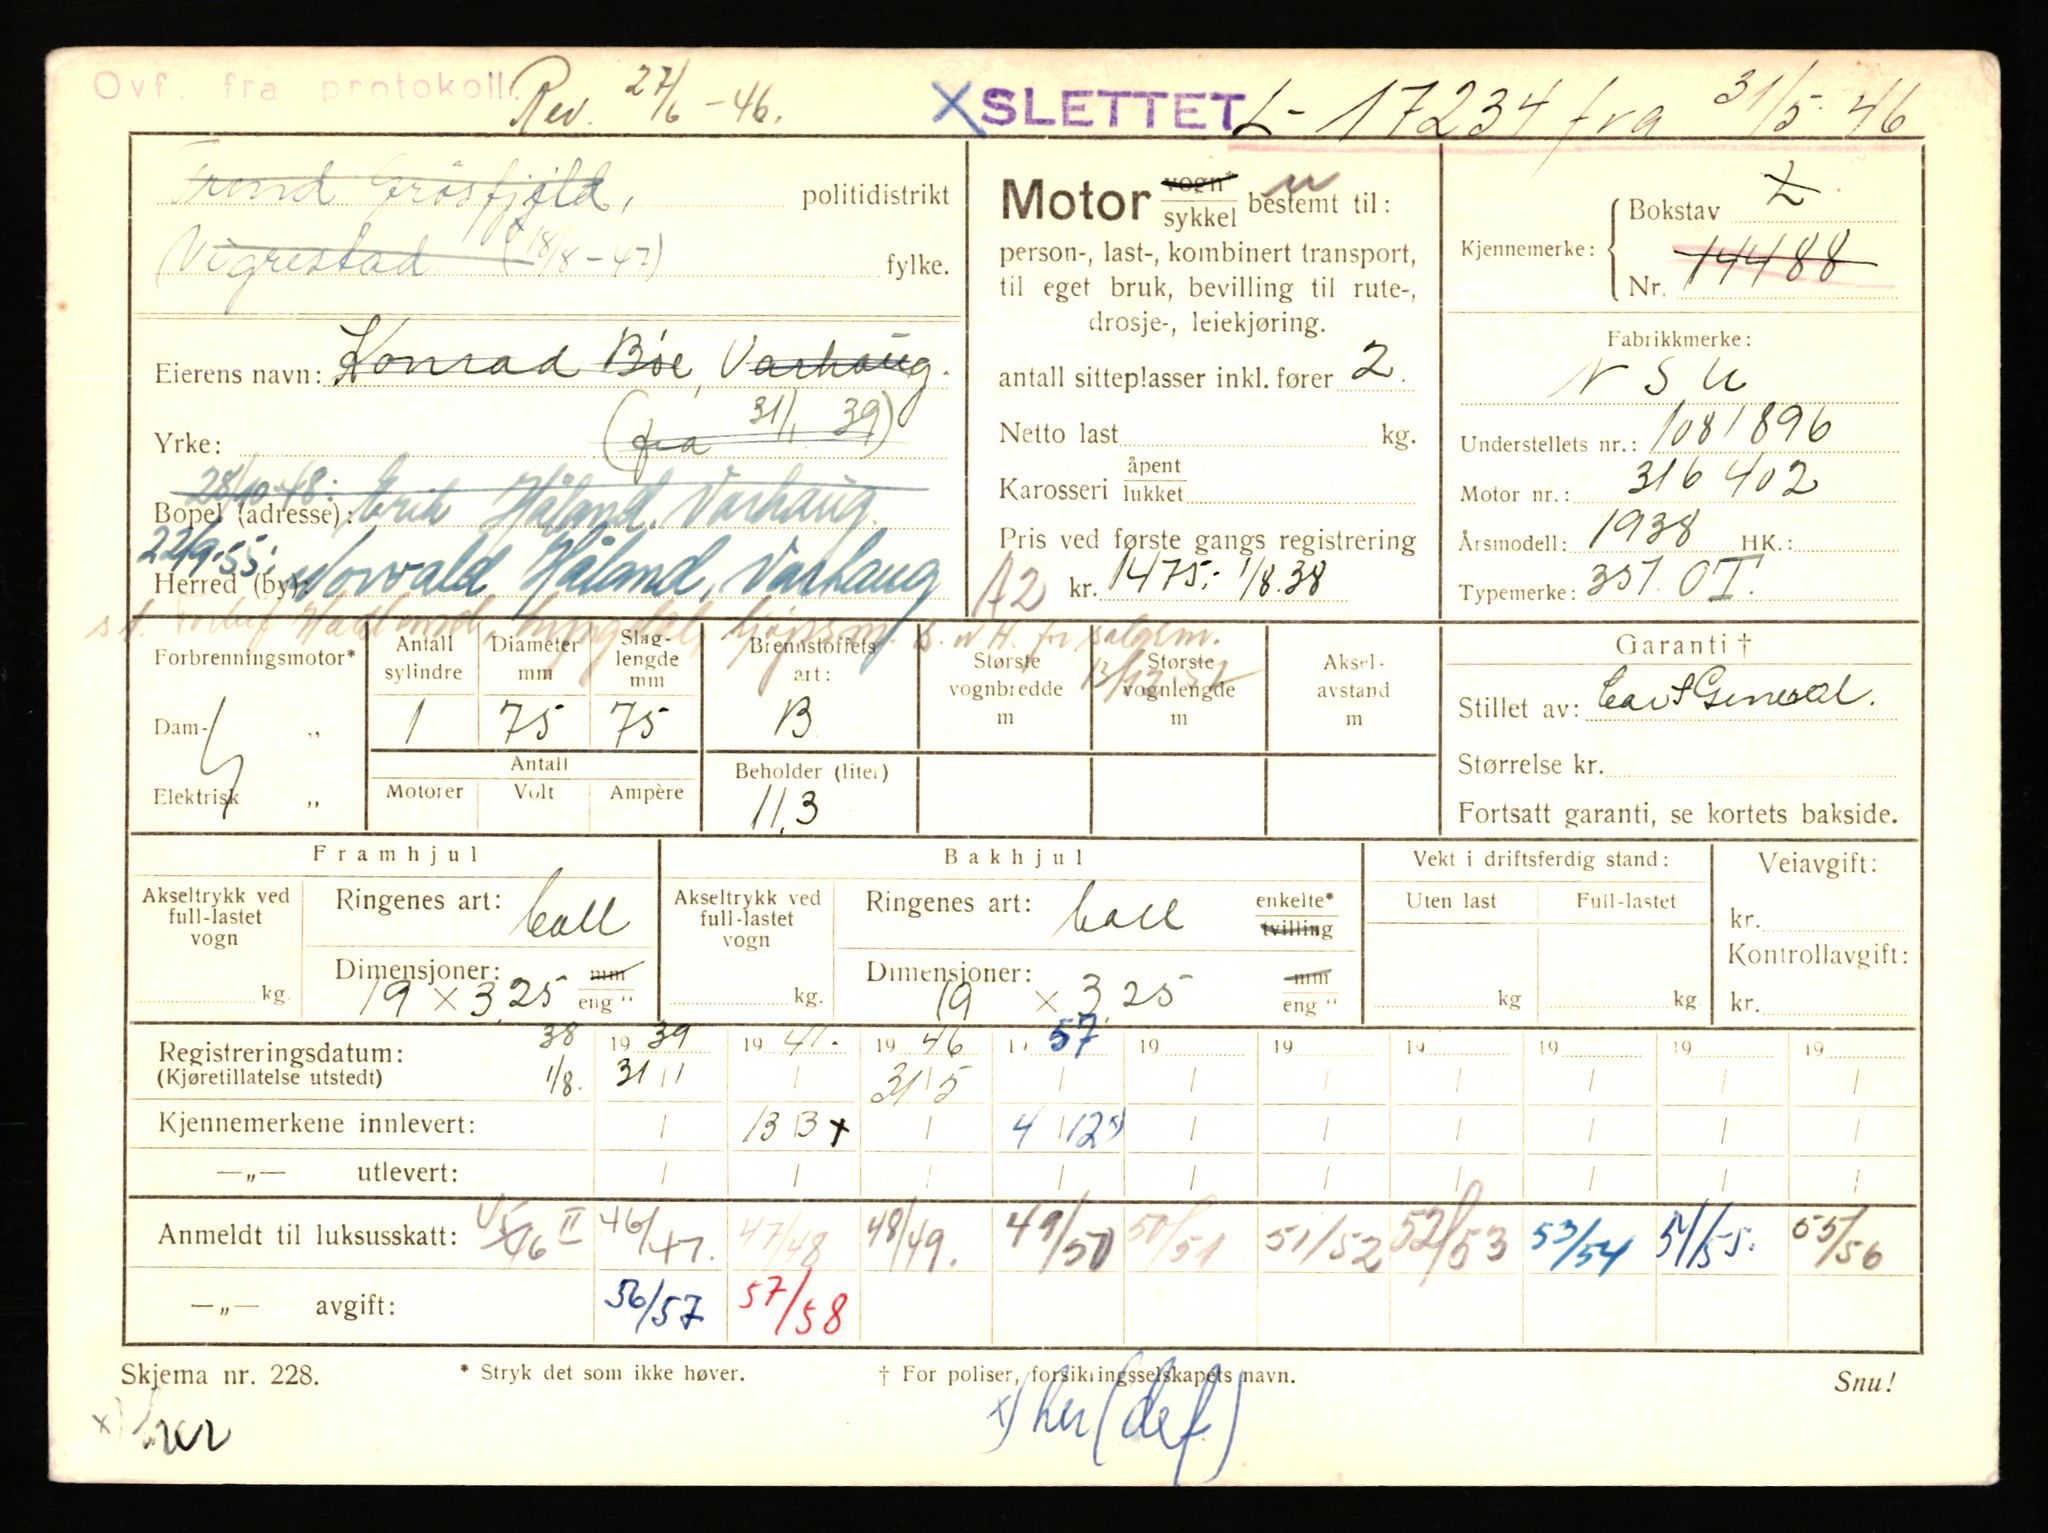 Ovf. fra protokoll. Rev. 27/6 - 46. X SLETTET L - 17234 fra 31/5 - 46
Trond Grøsfjeld, politidistrikt
(Vigrestad (18/8 - 47) fylke.
Eierens navn: Konrad Bøe, Varhaug.
Yrke: (fra 31/1 39)
28/10-48: Erik Håland, Varhaug.
Bopel (adresse):
22/9-55: Norvald Håland, Varhaug
Herred (by):
Motor vogn* sykkel bestemt til:
person-, last-, kombinert transport,
til eget bruk, bevilling til rute-,
drosje-, leiekjøring.
antall sitteplasser inkl. fører 2.
Netto last kg.
Karosseri åpent lukket
Pris ved første gangs registrering
A2 kr. 1475,- 1/8.38
Kjennemerke: Bokstav L
Nr. 14488
Fabrikkmerke:
N S U
Understellets nr.: 1081896
Motor nr.: 316402
Årsmodell: 1938 HK.:
Typemerke: 351 OT.
Håland, fr salgsm.
Forbrenningsmotor*
Dam- „
Elektrisk „
Antall sylindre 1
Diameter mm 75
Slaglengde mm 75
Antall
Motorer Volt Ampère
Brennstoffets art: B
Beholder (liter) 11,3
Største vognbredde m
Største vognlengde m
Akselavstand m
Garanti †
Stillet av: Car & General.
Størrelse kr.
Fortsatt garanti, se kortets bakside.
Framhjul
Akseltrykk ved full-lastet vogn kg.
Ringenes art: Call
Dimensjoner: 19 x 3,25 mm eng "
Bakhjul
Akseltrykk ved full-lastet vogn kg.
Ringenes art: Call enkelte* tvilling
Dimensjoner: 19 x 3,25 mm eng "
Vekt i driftsferdig stand:
Uten last Full-lastet
kg kg.
Veiavgift:
kr.
Kontrollavgift:
kr.
Registreringsdatum: 38 19 39 19 41. 19 46 19 57 19 19 19 19 19 19
(Kjøretillatelse utstedt) 1/8. 31/1 / 31/5 / / / / / / /
Kjennemerkene innlevert: / 13/3 x / 4/12 x) / / / / / /
—„— utlevert: / / / / / / / / / /
Anmeldt til luksusskatt: 45/46 II 46/47. 47/48 48/49. 49/50 50/51 51/52 52/53 53/54 54/55. 55/56
—„— avgift: 56/57 57/58
Skjema nr. 228. * Stryk det som ikke høver. † For poliser, forsikringsselskapets navn. Snu!
x) her x) her (def)